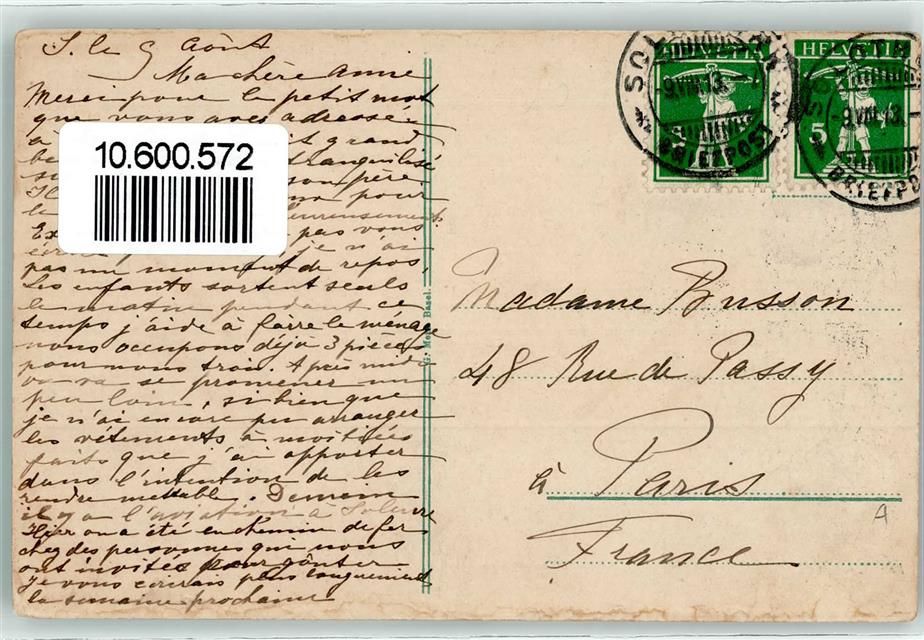 S. le 9 Août
Ma chère Anna
Merci pour le petit mot
que vous avez adressé
à grand
tranquilisé
son père
pour
la heureusement
pas vous
je n'ai
pas un moment de repos,
Les enfants sortent seuls
le matin pendant ce
temps j'aide à faire le ménage
nous occupons déjà 3 pièces
pour nous trois. Après midi
on va se promener un
peu loin, si bien que
je n'ai encore pu arranger
les vêtements à moitiées
faits que j'ai apporter
dans l'intention de les
rendre mettable. Demain
il y a l'aviation à Soleure
Hier on a été en chemin de fer
chez des personnes qui nous
ont invités pour goûter
je vous écrirais plus longuement
la semaine prochaine
10.600.572
Basel.
HELVETIA
HELVETIA
5
-9.VIII.13.
-9.VIII.13.
BRIEFPOST
BRIEFPO
Madame Busson
48 Rue de Passy
à Paris
France
A